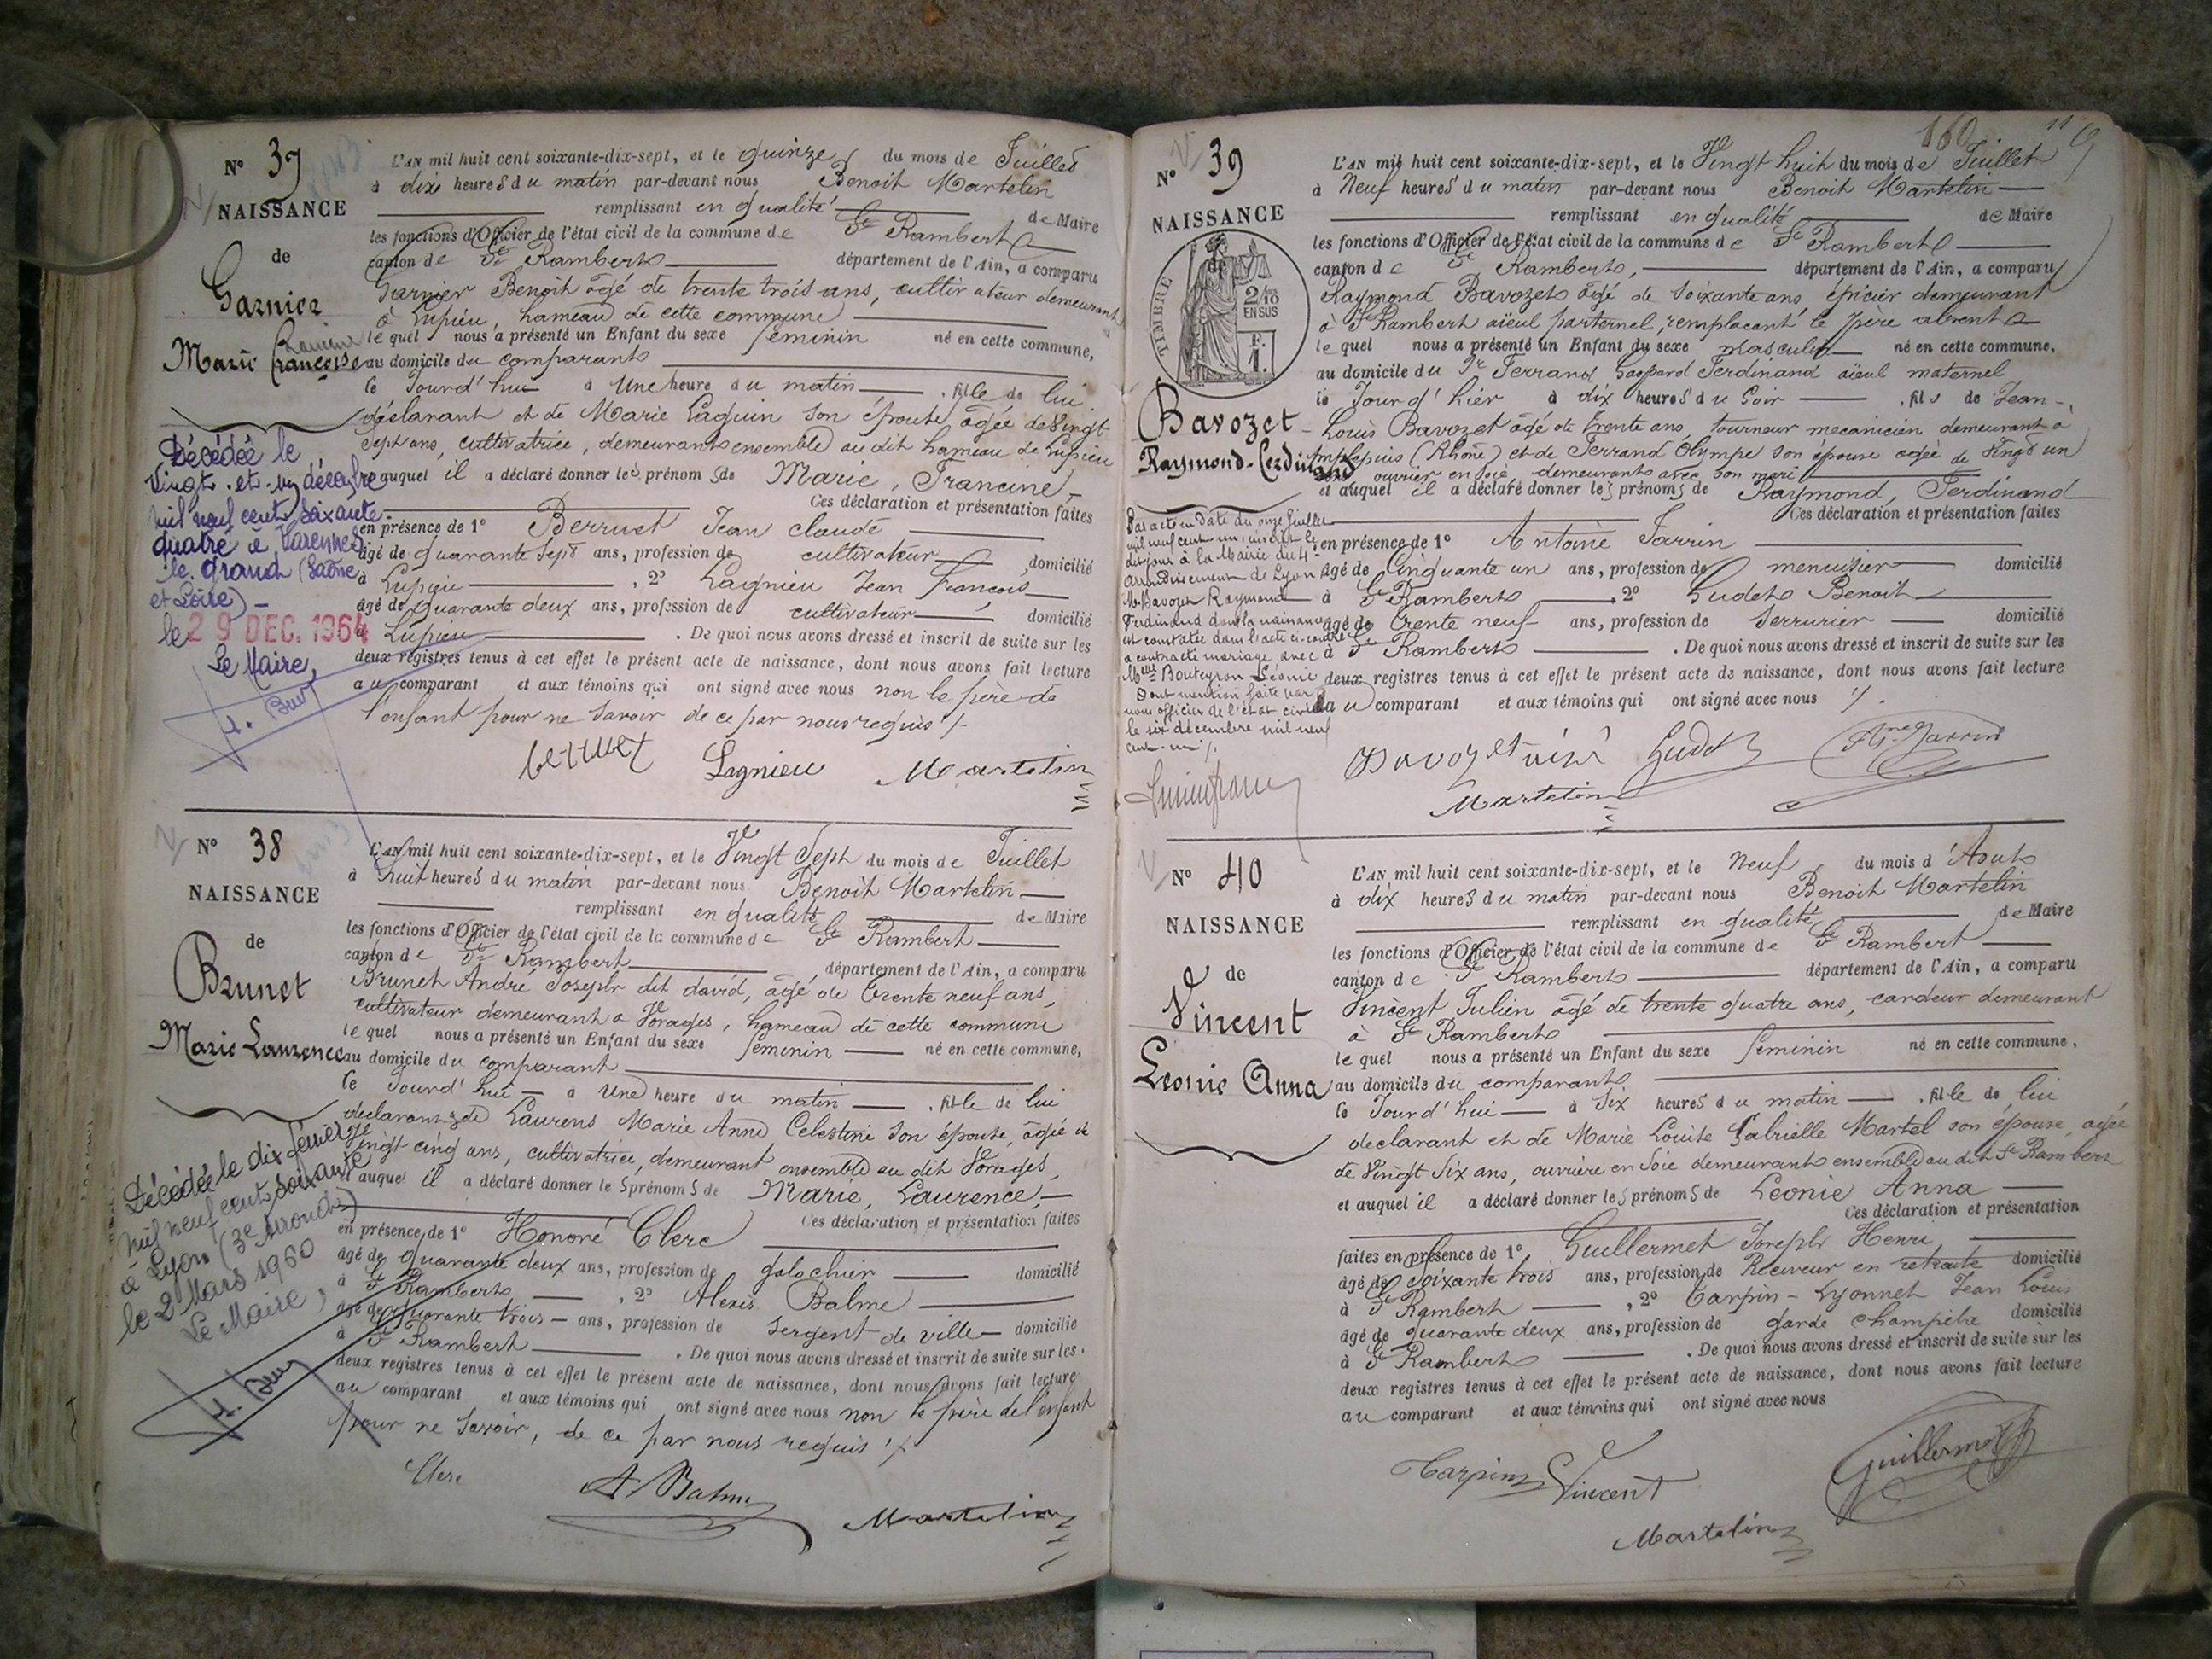 N° 37
NAISSANCE
de
Garnier
Francine
Marie Françoise
Décédée le
vingt-et-un décembre
mil neuf cent soixante-
quatre à Varennes
le grand (Saône
et Loire) –
le 29 DEC. 1964
Le Maire,
L'AN mil huit cent soixante-dix-sept, et le quinze du mois de Juillet
à dix heures du matin par-devant nous Benoit Martelin
remplissant en qualité de Maire
les fonctions d'Officier de l'état civil de la commune de St Rambert
canton de St Rambert département de l'Ain, a comparu
Garnier Benoit âgé de trente trois ans, cultivateur demeurant
à Lupieu, hameau de cette commune
lequel nous a présenté un Enfant du sexe féminin né en cette commune,
au domicile du comparant
le Jourd'hui à Une heure du matin , fille de lui
déclarant et de Marie Laguin son épouse âgée de Vingt
Sept ans, cultivatrice, demeurants ensemble au dit hameau de Lupieu
auquel il a déclaré donner les prénoms de Marie, Francine
Ces déclaration et présentation faites
en présence de 1° Berruet Jean claude
âgé de quarante sept ans, profession de cultivateur domicilié
à Lupieu , 2° Lagnieu Jean François
âgé de quarante deux ans, profession de cultivateur domicilié
à Lupieu . De quoi nous avons dressé et inscrit de suite sur les
deux registres tenus à cet effet le présent acte de naissance, dont nous avons fait lecture
au comparant et aux témoins qui ont signé avec nous non le père de
l'enfant pour ne savoir de ce par nous requis /.
berruet Lagnieu Martelin
N° 38
NAISSANCE
de
Brunet
Marie Laurence
Décédée le dix février
mil neuf cent soixante
à Lyon (3e Arrondt)
le 2 Mars 1960
Le Maire,
L'AN mil huit cent soixante-dix-sept, et le Vingt Sept du mois de Juillet
à huit heures du matin par-devant nous Benoit Martelin
remplissant en qualité de Maire
les fonctions d'Officier de l'état civil de la commune de St Rambert
canton de St Rambert département de l'Ain, a comparu
Brunet André Joseph dit david, âgé de trente neuf ans,
cultivateur demeurant à Vorages, hameau de cette commune
lequel nous a présenté un Enfant du sexe féminin né en cette commune,
au domicile du comparant
le Jourd'hui à Une heure du matin , fille de lui
declarant & de Laurens Marie Anne Celestine son épouse, âgée de
Vingt cinq ans, cultivatrice, demeurant ensemble au dit Vorages,
et auquel il a déclaré donner les prénoms de Marie, Laurence,
Ces déclaration et présentation faites
en présence de 1° Honoré Clerc
âgé de quarante deux ans, profession de galochier domicilié
à St Rambert , 2° Alexis Balme
âgé de quarante trois ans, profession de sergent de ville domicilié
à St Rambert . De quoi nous avons dressé et inscrit de suite sur les
deux registres tenus à cet effet le présent acte de naissance, dont nous avons fait lecture
au comparant et aux témoins qui ont signé avec nous non le père de l'enfant
pour ne savoir, de ce par nous requis /.
Clerc A Balme Martelin
160
N° 39
NAISSANCE
de
TIMBRE
2/10
EN SUS
F.
1.
Bavozet
Raymond-Ferdinand
Par acte en date du onze Juillet
mil neuf cent un, inscrit le
dit jour à la Mairie du 4e
arrondissement de Lyon
M. Bavozet Raymond
Ferdinand dont la naissance
est constatée dans l'acte ci-contre
a contracté mariage avec
Mlle Bouteyron Léonie
Dont mention faite par
nous officier de l'état civil
le six décembre mil neuf
cent un /.
L'AN mil huit cent soixante-dix-sept, et le Vingt huit du mois de Juillet
à Neuf heures du matin par-devant nous Benoit Martelin
remplissant en qualité de Maire
les fonctions d'Officier de l'état civil de la commune de St Rambert
canton de St Rambert, département de l'Ain, a comparu
Raymond Bavozet âgé de soixante ans, épicier demeurant
à St Rambert aïeul parternel, remplacant le père absent
lequel nous a présenté un Enfant du sexe masculin né en cette commune,
au domicile du Sr Ferrand Gaspard Ferdinand aïeul maternel
le Jour d'hier à dix heures du Soir , fils de Jean-
Louis Bavozet âgé de trente ans, tourneur mecanicien demeurant à
Amplepuis (Rhône) et de Ferrand Olympe son épouse agée de Vingt un
ans ouvrier en soie demeurants avec son mari
et auquel il a déclaré donner les prénoms de Raymond, Ferdinand
Ces déclaration et présentation faites
en présence de 1° Antoine Jarrin
âgé de Cinquante un ans, profession de menuisier domicilié
à St Rambert , 2° Gudet Benoit
âgé de trente neuf ans, profession de Serrurier domicilié
à St Rambert . De quoi nous avons dressé et inscrit de suite sur les
deux registres tenus à cet effet le présent acte de naissance, dont nous avons fait lecture
au comparant et aux témoins qui ont signé avec nous /.
Bavozet ainé Gudet Jarrin
Martelin
N° 40
NAISSANCE
de
Vincent
Leonie Anna
L'AN mil huit cent soixante-dix-sept, et le Neuf du mois d'Aout
à dix heures du matin par-devant nous Benoit Martelin
remplissant en qualité de Maire
les fonctions d'Officier de l'état civil de la commune de St Rambert
canton de St Rambert département de l'Ain, a comparu
Vincent Julien âgé de trente quatre ans, cardeur demeurant
à St Rambert
lequel nous a présenté un Enfant du sexe féminin né en cette commune,
au domicile du comparant
le Jourd'hui à Six heures du matin , fille de lui
declarant et de Marie Louise Gabrielle Martel son épouse, agée
de Vingt Six ans, ouvrière en Soie demeurants ensemble au dit St Rambert
et auquel il a déclaré donner les prénoms de Leonie Anna
Ces déclaration et présentation
faites en présence de 1° Guillermet Joseph Henri
âgé de soixante trois ans, profession de Receveur en retraite domicilié
à St Rambert , 2° Carpin-Lyonnet Jean Louis
âgé de quarante deux ans, profession de garde champêtre domicilié
à St Rambert . De quoi nous avons dressé et inscrit de suite sur les
deux registres tenus à cet effet le présent acte de naissance, dont nous avons fait lecture
au comparant et aux témoins qui ont signé avec nous
Carpin Vincent Guillermet
Martelin